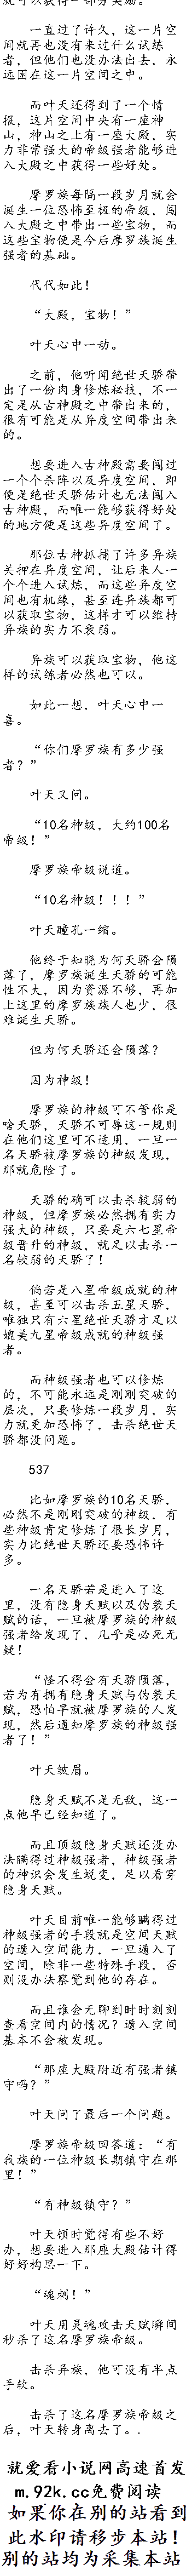 就可以获得一部分奖励。
一直过了许久，这一片空
间就再也没有来过什么试炼
者，但他们也没办法出去，永
远困在这一片空间之中。
而叶天还得到了一个情
报，这片空间中央有一座神
山，神山之上有一座大殿，实
力非常强大的帝级强者能够进
入大殿之中获得一些好处。
摩罗族每隔一段岁月就会
诞生一位恐怖至极的帝级，闯
入大殿之中带出一些宝物，而
这些宝物便是今后摩罗族诞生
强者的基础。
代代如此！
“大殿，宝物！”
叶天心中一动。
之前，他听闻绝世天骄带
出了一份肉身修炼秘技，不一
定是从古神殿之中带出来的，
很有可能是从异度空间带出来
的。
想要进入古神殿需要闯过
一个个杀阵以及异度空间，即
便是绝世天骄估计也无法闯入
古神殿，而唯一能够获得好处
的地方便是这些异度空间了。
那位古神抓捕了许多异族
关押在异度空间，让后来人一
个个进入试炼，而这些异度空
间也有机缘，甚至连异族都可
以获取宝物，这样才可以维持
异族的实力不衰弱。
异族可以获取宝物，他这
样的试炼者必然也可以。
如此一想，叶天心中一
喜。
“你们摩罗族有多少强
者？”
叶天又问。
“10名神级，大约100名
帝级！”
摩罗族帝级说道。
“10名神级！！！”
叶天瞳孔一缩。
他终于知晓为何天骄会陨
落了，摩罗族诞生天骄的可能
性不大，因为资源不够，再加
上这里的摩罗族族人也少，很
难诞生天骄。
但为何天骄还会陨落？
因为神级！
摩罗族的神级可不管你是
啥天骄，天骄不可辱这一规则
在他们这里可不适用，一旦一
名天骄被摩罗族的神级发现，
那就危险了。
天骄的确可以击杀较弱的
神级，但摩罗族必然拥有实力
强大的神级，只要是六七星帝
级晋升的神级，就足以击杀一
名较弱的天骄了！
倘若是八星帝级成就的神
级，甚至可以击杀五星天骄，
唯独只有六星绝世天骄才足以
媲美九星帝级成就的神级强
者。
而神级强者也可以修炼
的，不可能永远是刚刚突破的
层次，只要修炼一段岁月，实
力就更加恐怖了，击杀绝世天
骄都没问题。
537
比如摩罗族的10名天骄，
必然不是刚刚突破的神级，有
些神级肯定修炼了很长岁月，
实力比绝世天骄还要恐怖许
多。
一名天骄若是进入了这
里，没有隐身天赋以及伪装天
赋的话，一旦被摩罗族的神级
强者给发现了，几乎是必死无
疑！
“怪不得会有天骄陨落，
若为有拥有隐身天赋与伪装天
赋，恐怕早就被摩罗族的人发
现，然后通知摩罗族的神级强
者了！”
叶天皱眉。
隐身天赋不是无敌，这一
点他早已经知道了。
而且顶级隐身天赋还没办
法瞒得过神级强者，神级强者
的神识会发生蜕变，足以看穿
隐身天赋。
叶天目前唯一能够瞒得过
神级强者的手段就是空间天赋
的遁入空间能力，一旦遁入了
空间，除非一些特殊手段，否
则没办法察觉到他的存在。
而且谁会无聊到时时刻刻
查看空间内的情况？遁入空间
基本不会被发现。
“那座大殿附近有强者镇
守吗？”
叶天问了最后一个问题。
摩罗族帝级回答道：“有
我族的一位神级长期镇守在那
里！”
“有神级镇守？”
叶天顿时觉得有些不好
办，想要进入那座大殿估计得
好好构思一下。
“魂刺！”
叶天用灵魂攻击天赋瞬间
秒杀了这名摩罗族帝级。
击杀异族，他可没有半点
手软。
击杀了这名摩罗族帝级之
后，叶天转身离去了。.
就爱看小说网高速首发
m.92k.cc免费阅读
如果你在别的站看到
此水印请移步本站！
别的站均为采集本站